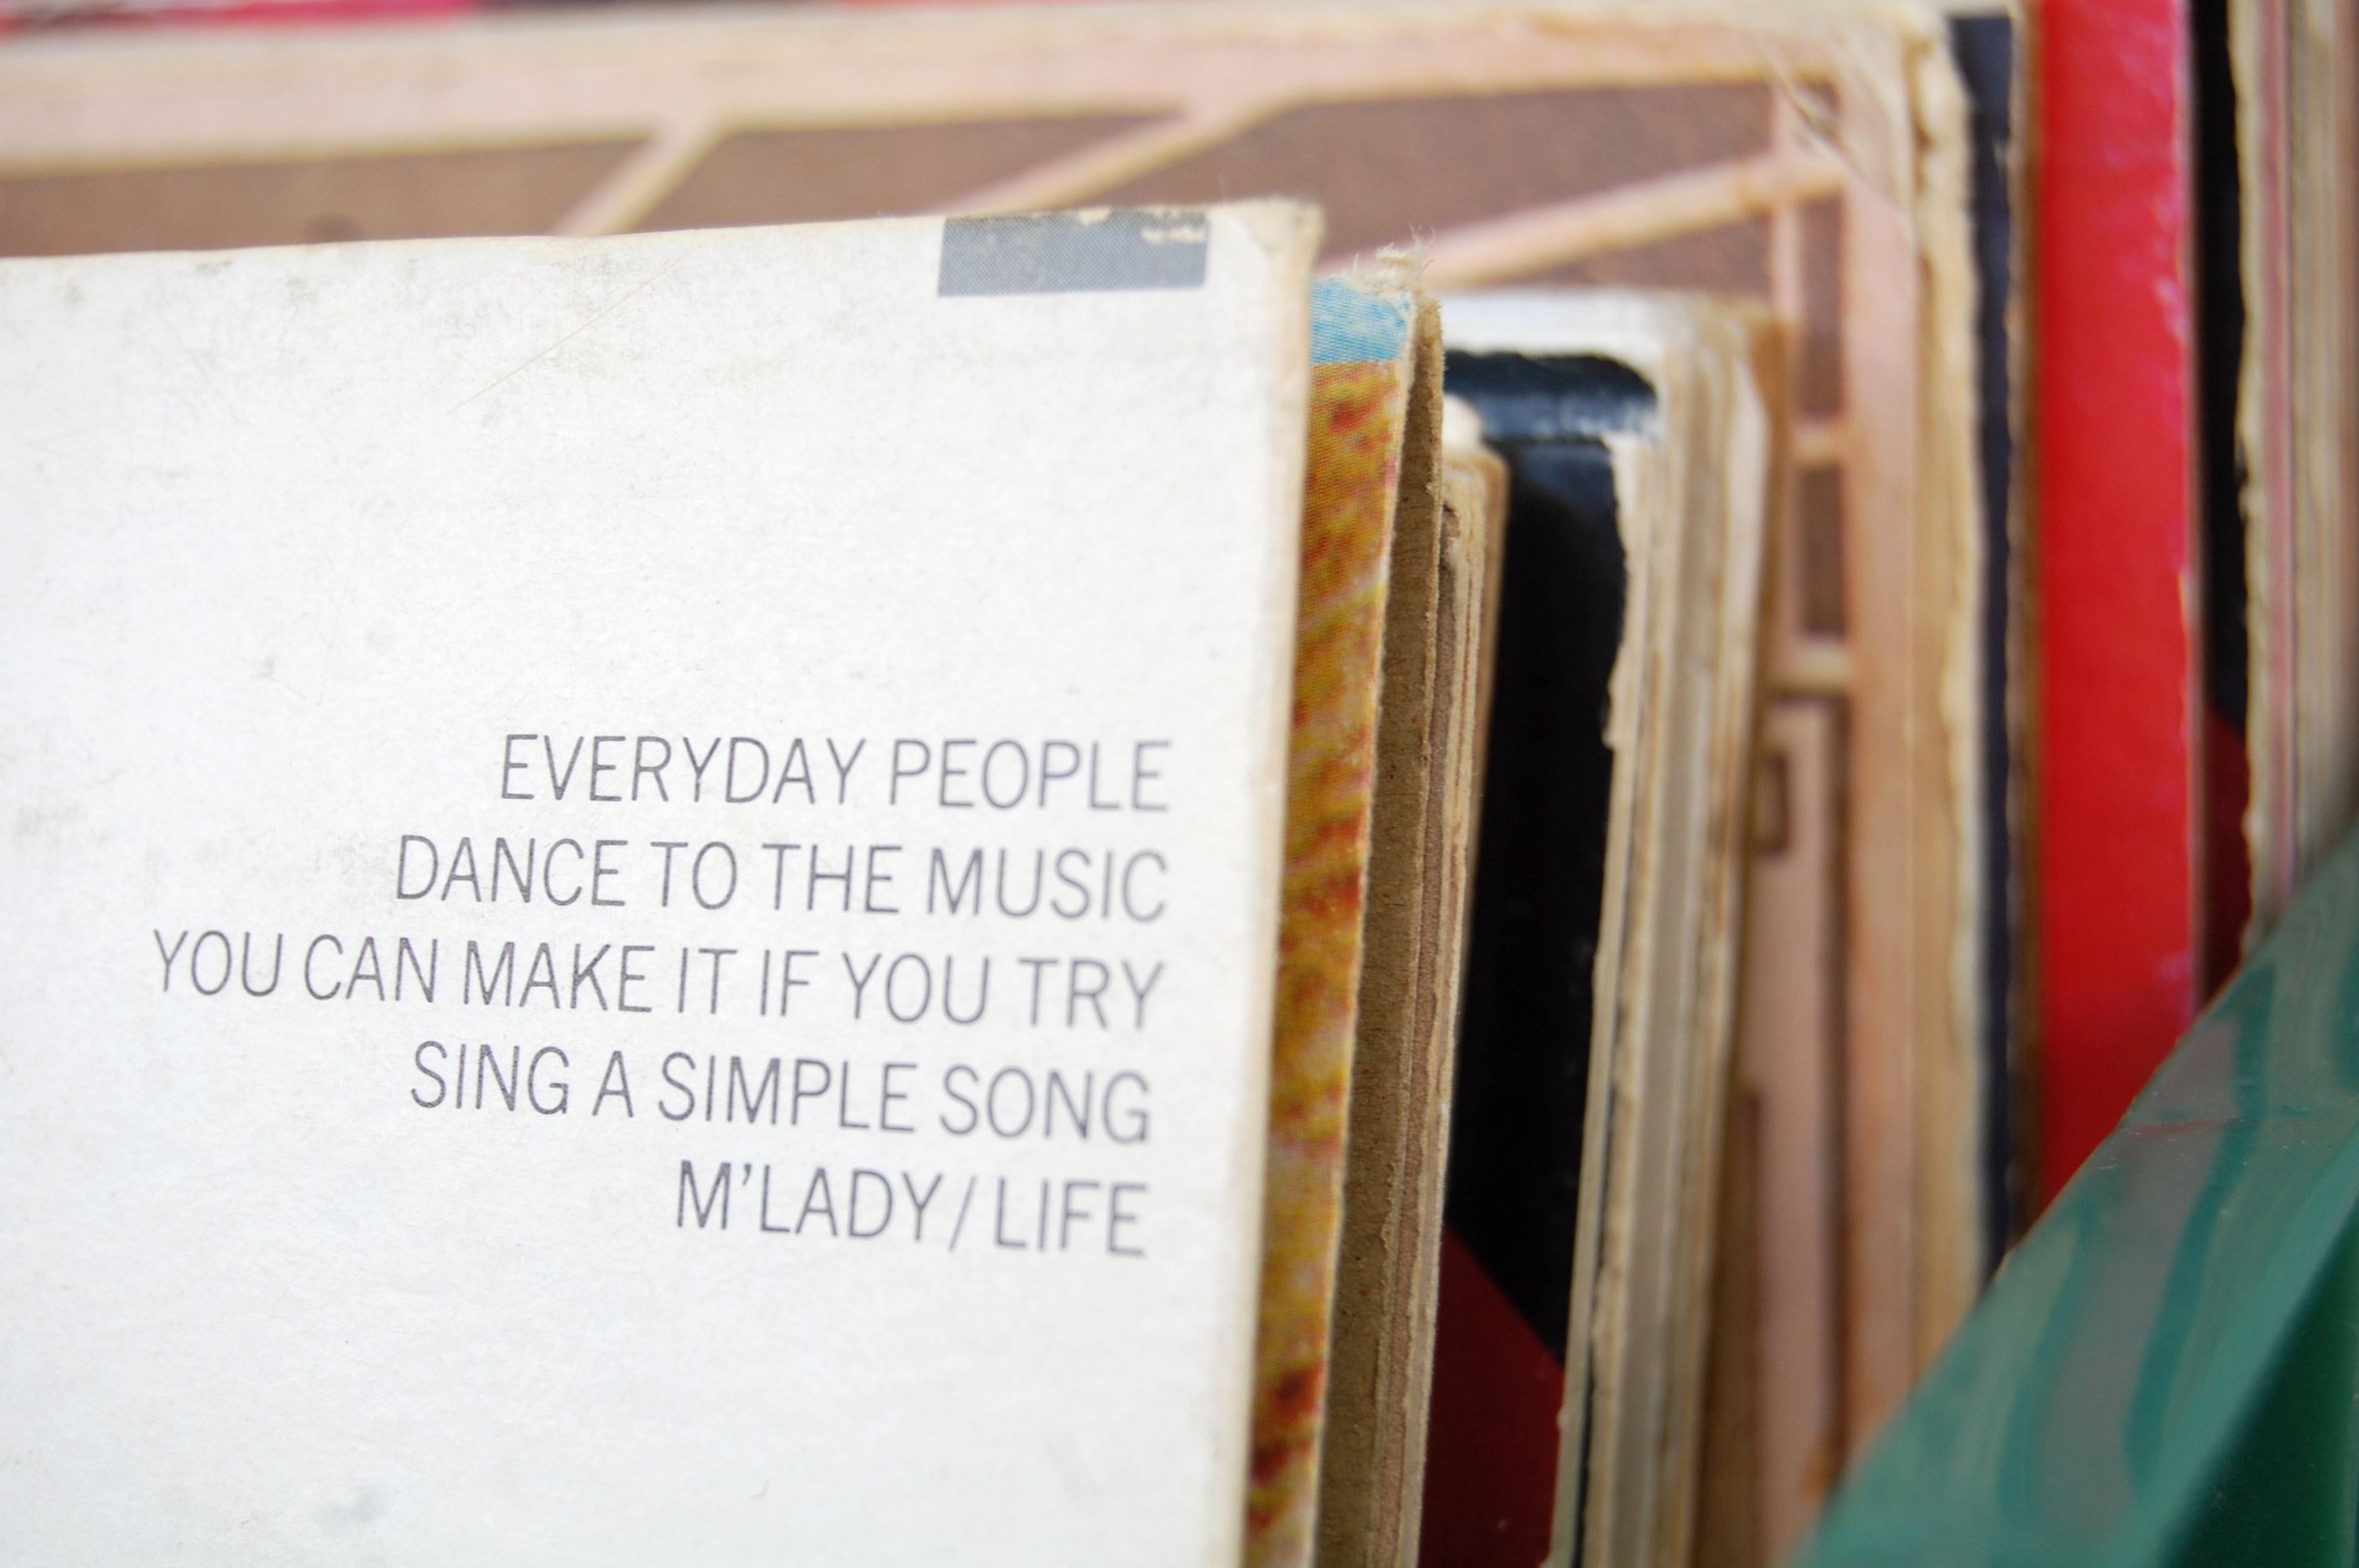 EVERYDAY PEOPLE
DANCE TO THE MUSIC
YOU CAN MAKE IT IF YOU TRY
SING A SIMPLE SONG
M'LADY/LIFE